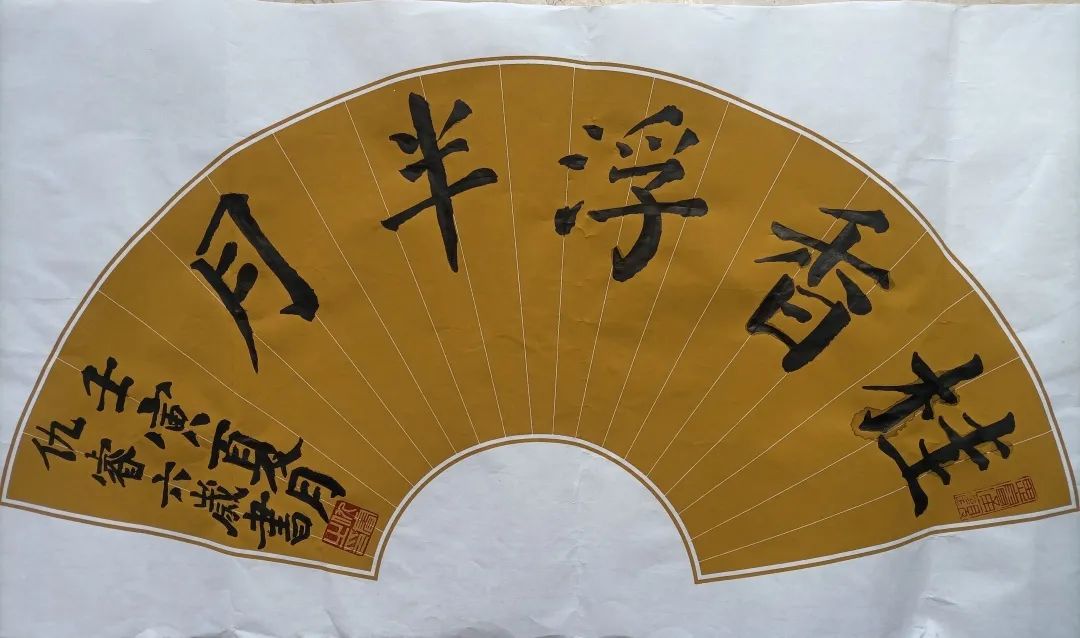 桂香浮半月
壬寅夏月
仇睿六歲書